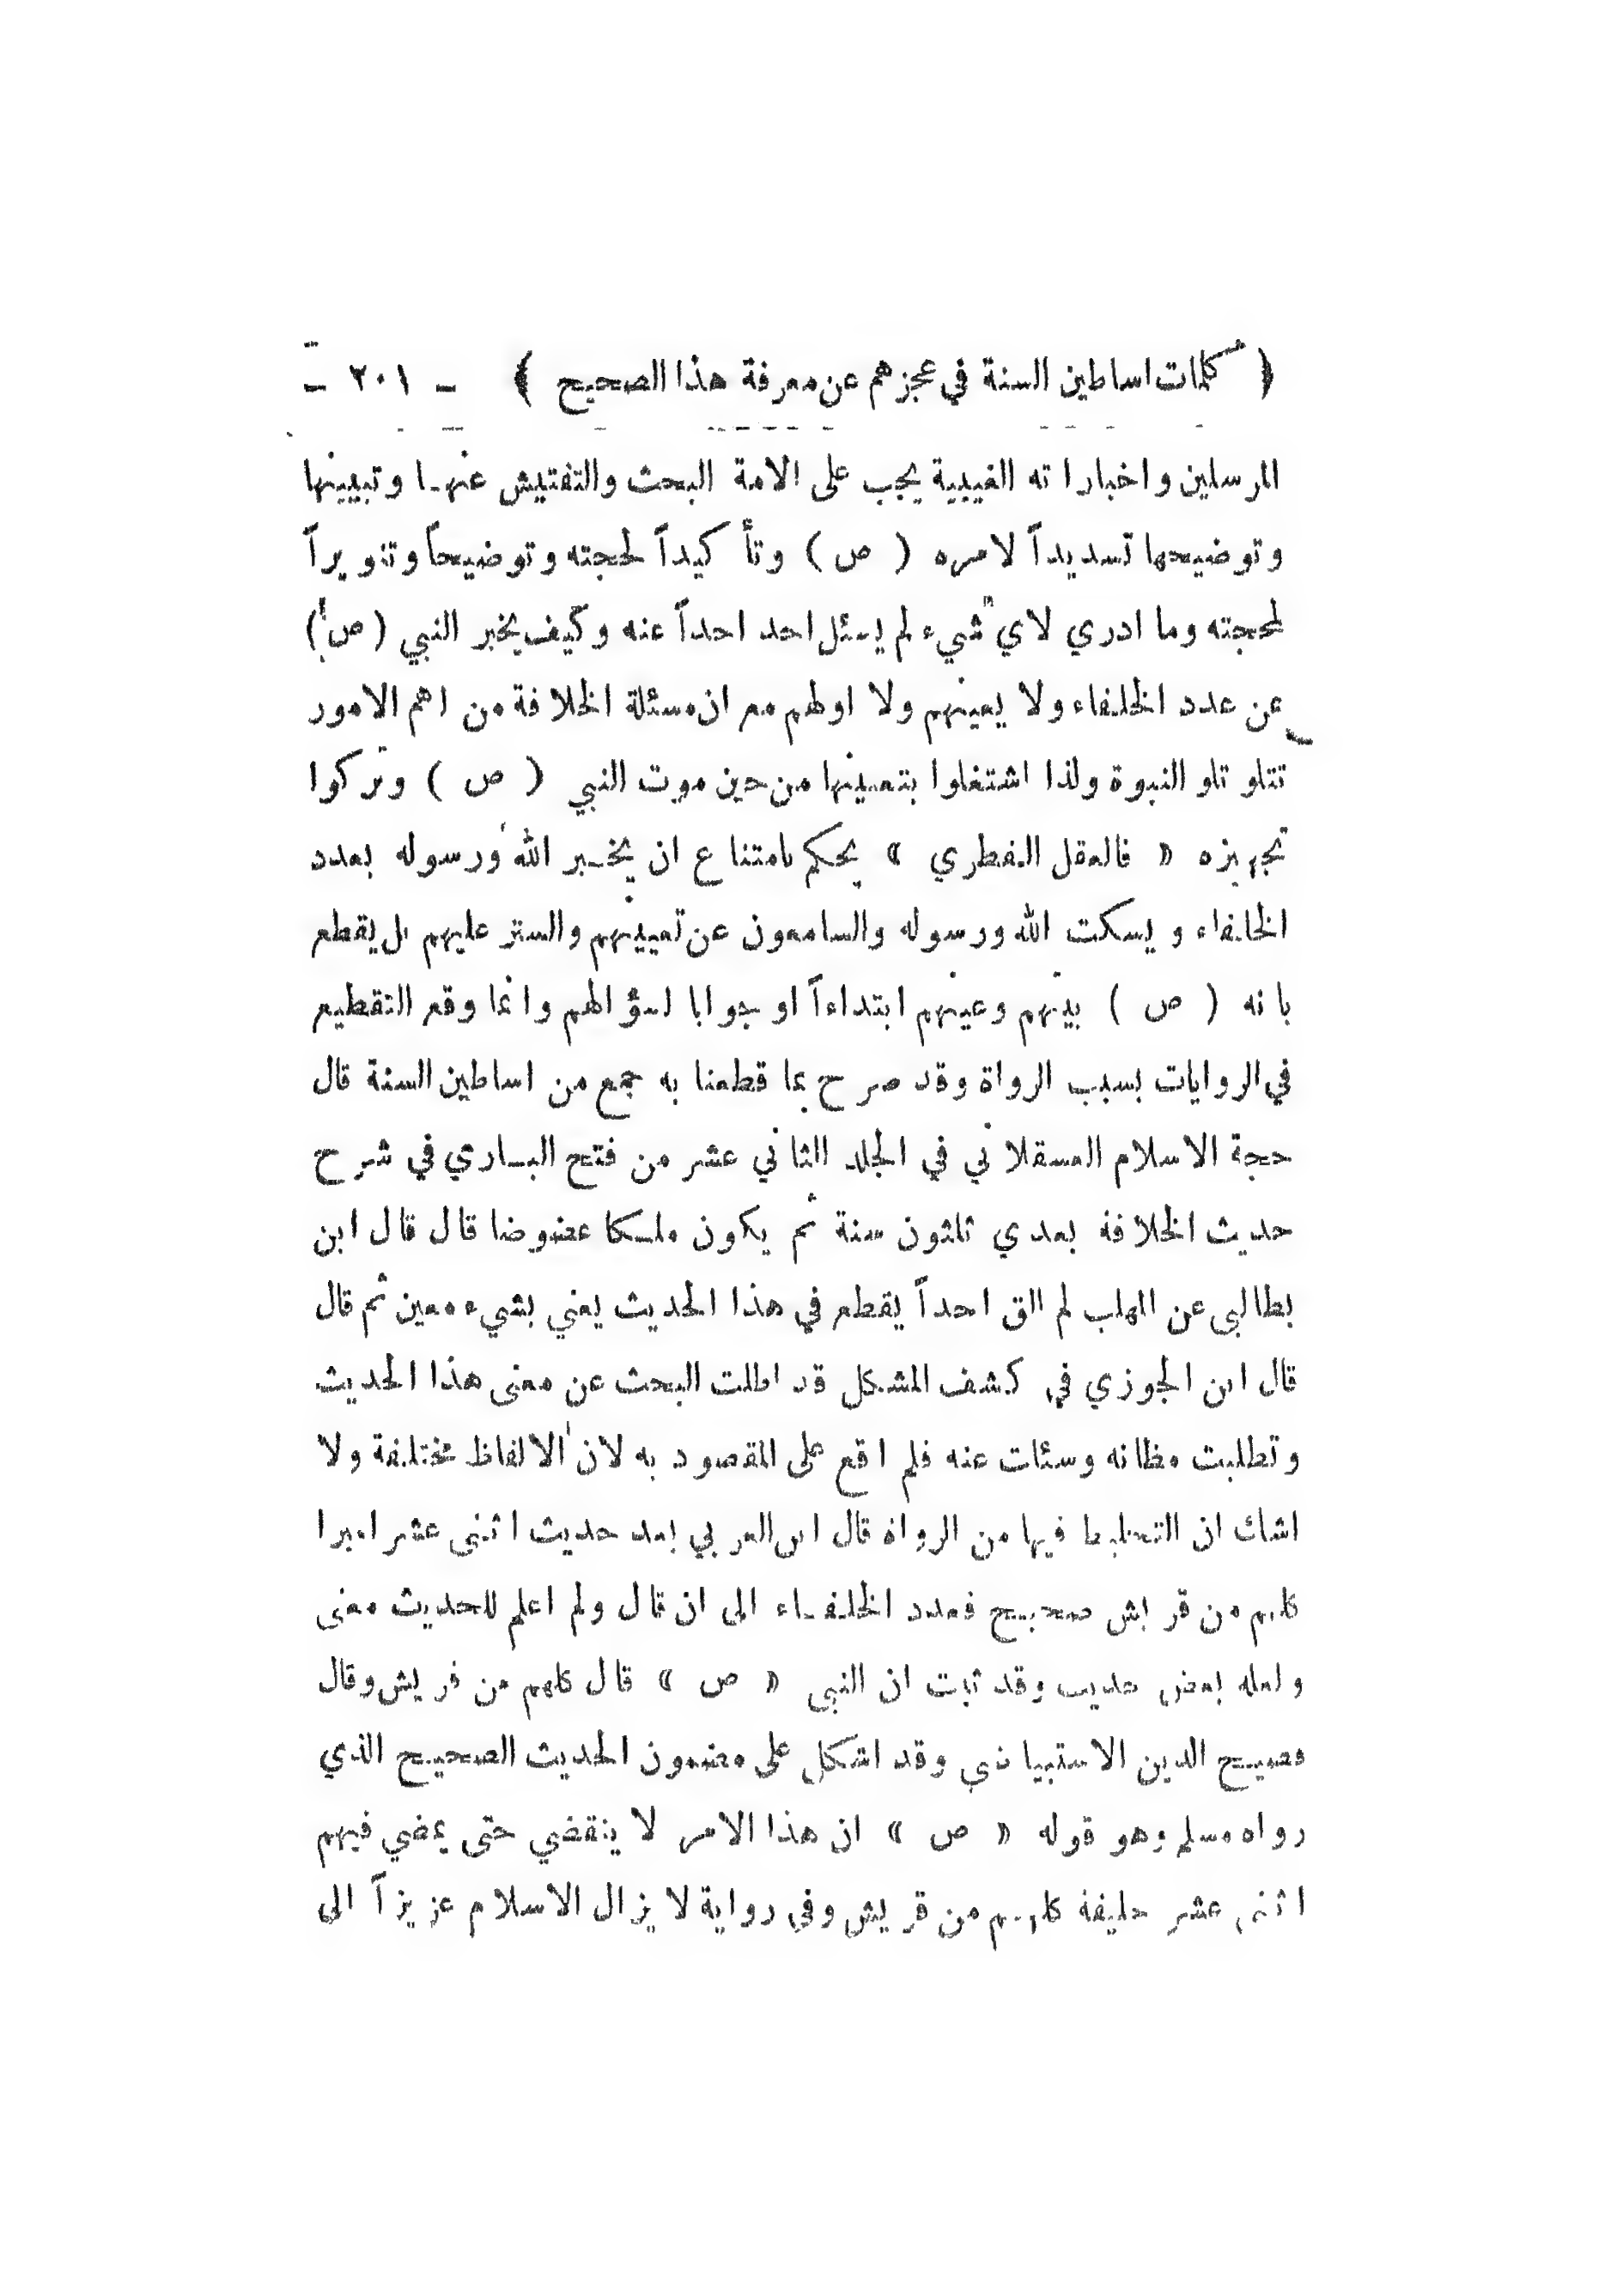 ﴿ كلمات اساطين السنة في عجزهم عن معرفة هذا الصحيح ﴾ ـ ٢٠١ ـ
المرسلين واخباراته الغيبية يجب على الامة البحث والتفتيش عنها وتبيينها
وتوضيحها تسديداً لامره ( ص ) وتأكيداً لحجته وتوضيحاً وتنويراً
لمحجته وما ادري لاي شيء لم يسئل احد احداً عنه وكيف يخبر النبي ( ص )
عن عدد الخلفاء ولا يعينهم ولا اولهم مع ان مسئلة الخلافة من اهم الامور
تتلو تلو النبوة ولذا اشتغلوا بتعيينها من حين موت النبي ( ص ) وتركوا
تجهيزه « فالعقل الفطري » يحكم بامتناع ان يخبر الله ورسوله بعدد
الخلفاء ويسكت الله ورسوله والسامعون عن تعيينهم والستر عليهم بل يقطع
بانه ( ص ) بينهم وعينهم ابتداءاً او جوابا لسؤالهم وانما وقع التقطيع
في الروايات بسبب الرواة وقد صرح بما قطعنا به جمع من اساطين السنة قال
حجة الاسلام العسقلاني في الجلد الثاني عشر من فتح الباري في شرح
حديث الخلافة بعدي ثلثون سنة ثم يكون ملكا عضوضا قال قال ابن
بطالبى عن المهلب لم الق احداً يقطع في هذا الحديث يعني بشيء معين ثم قال
قال ابن الجوزي في كشف المشكل قد اطلت البحث عن معنى هذا الحديث
وتطلبت مظانه وسئلت عنه فلم اقع على المقصود به لان الالفاظ مختلفة ولا
اشك ان التخليط فيها من الرواة قال ابن العربي بعد حديث اثنى عشر اميرا
كلهم من قريش صحيح فعدد الخلفاء الى ان قال ولم اعلم للحديث معنى
ولعله بعض حديث وقد ثبت ان النبى « ص » قال كلهم من قريش وقال
فصيح الدين الاستبياني وقد اشكل على مضمون الحديث الصحيح الذي
رواه مسلم وهو قوله « ص » ان هذا الامر لا ينقضي حتى يمضي فيهم
اثنى عشر خليفة كلهم من قريش وفي رواية لا يزال الاسلام عزيزاً الى